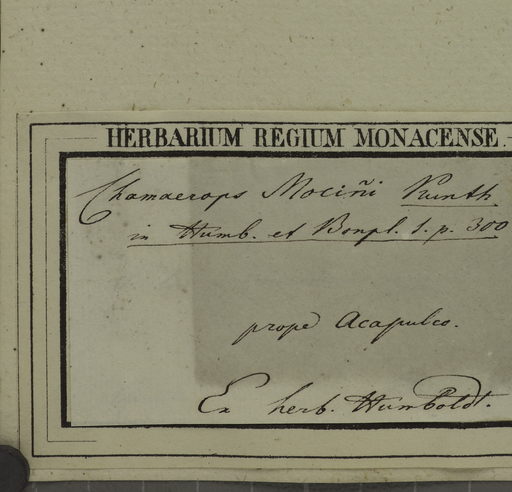 HERBARIUM REGIUM MONACENSE.
Chamaerops Mociñi Kunth
in Humb. et Bonpl. 1. p. 300
prope Acapulco.
Ex herb. Humboldt.